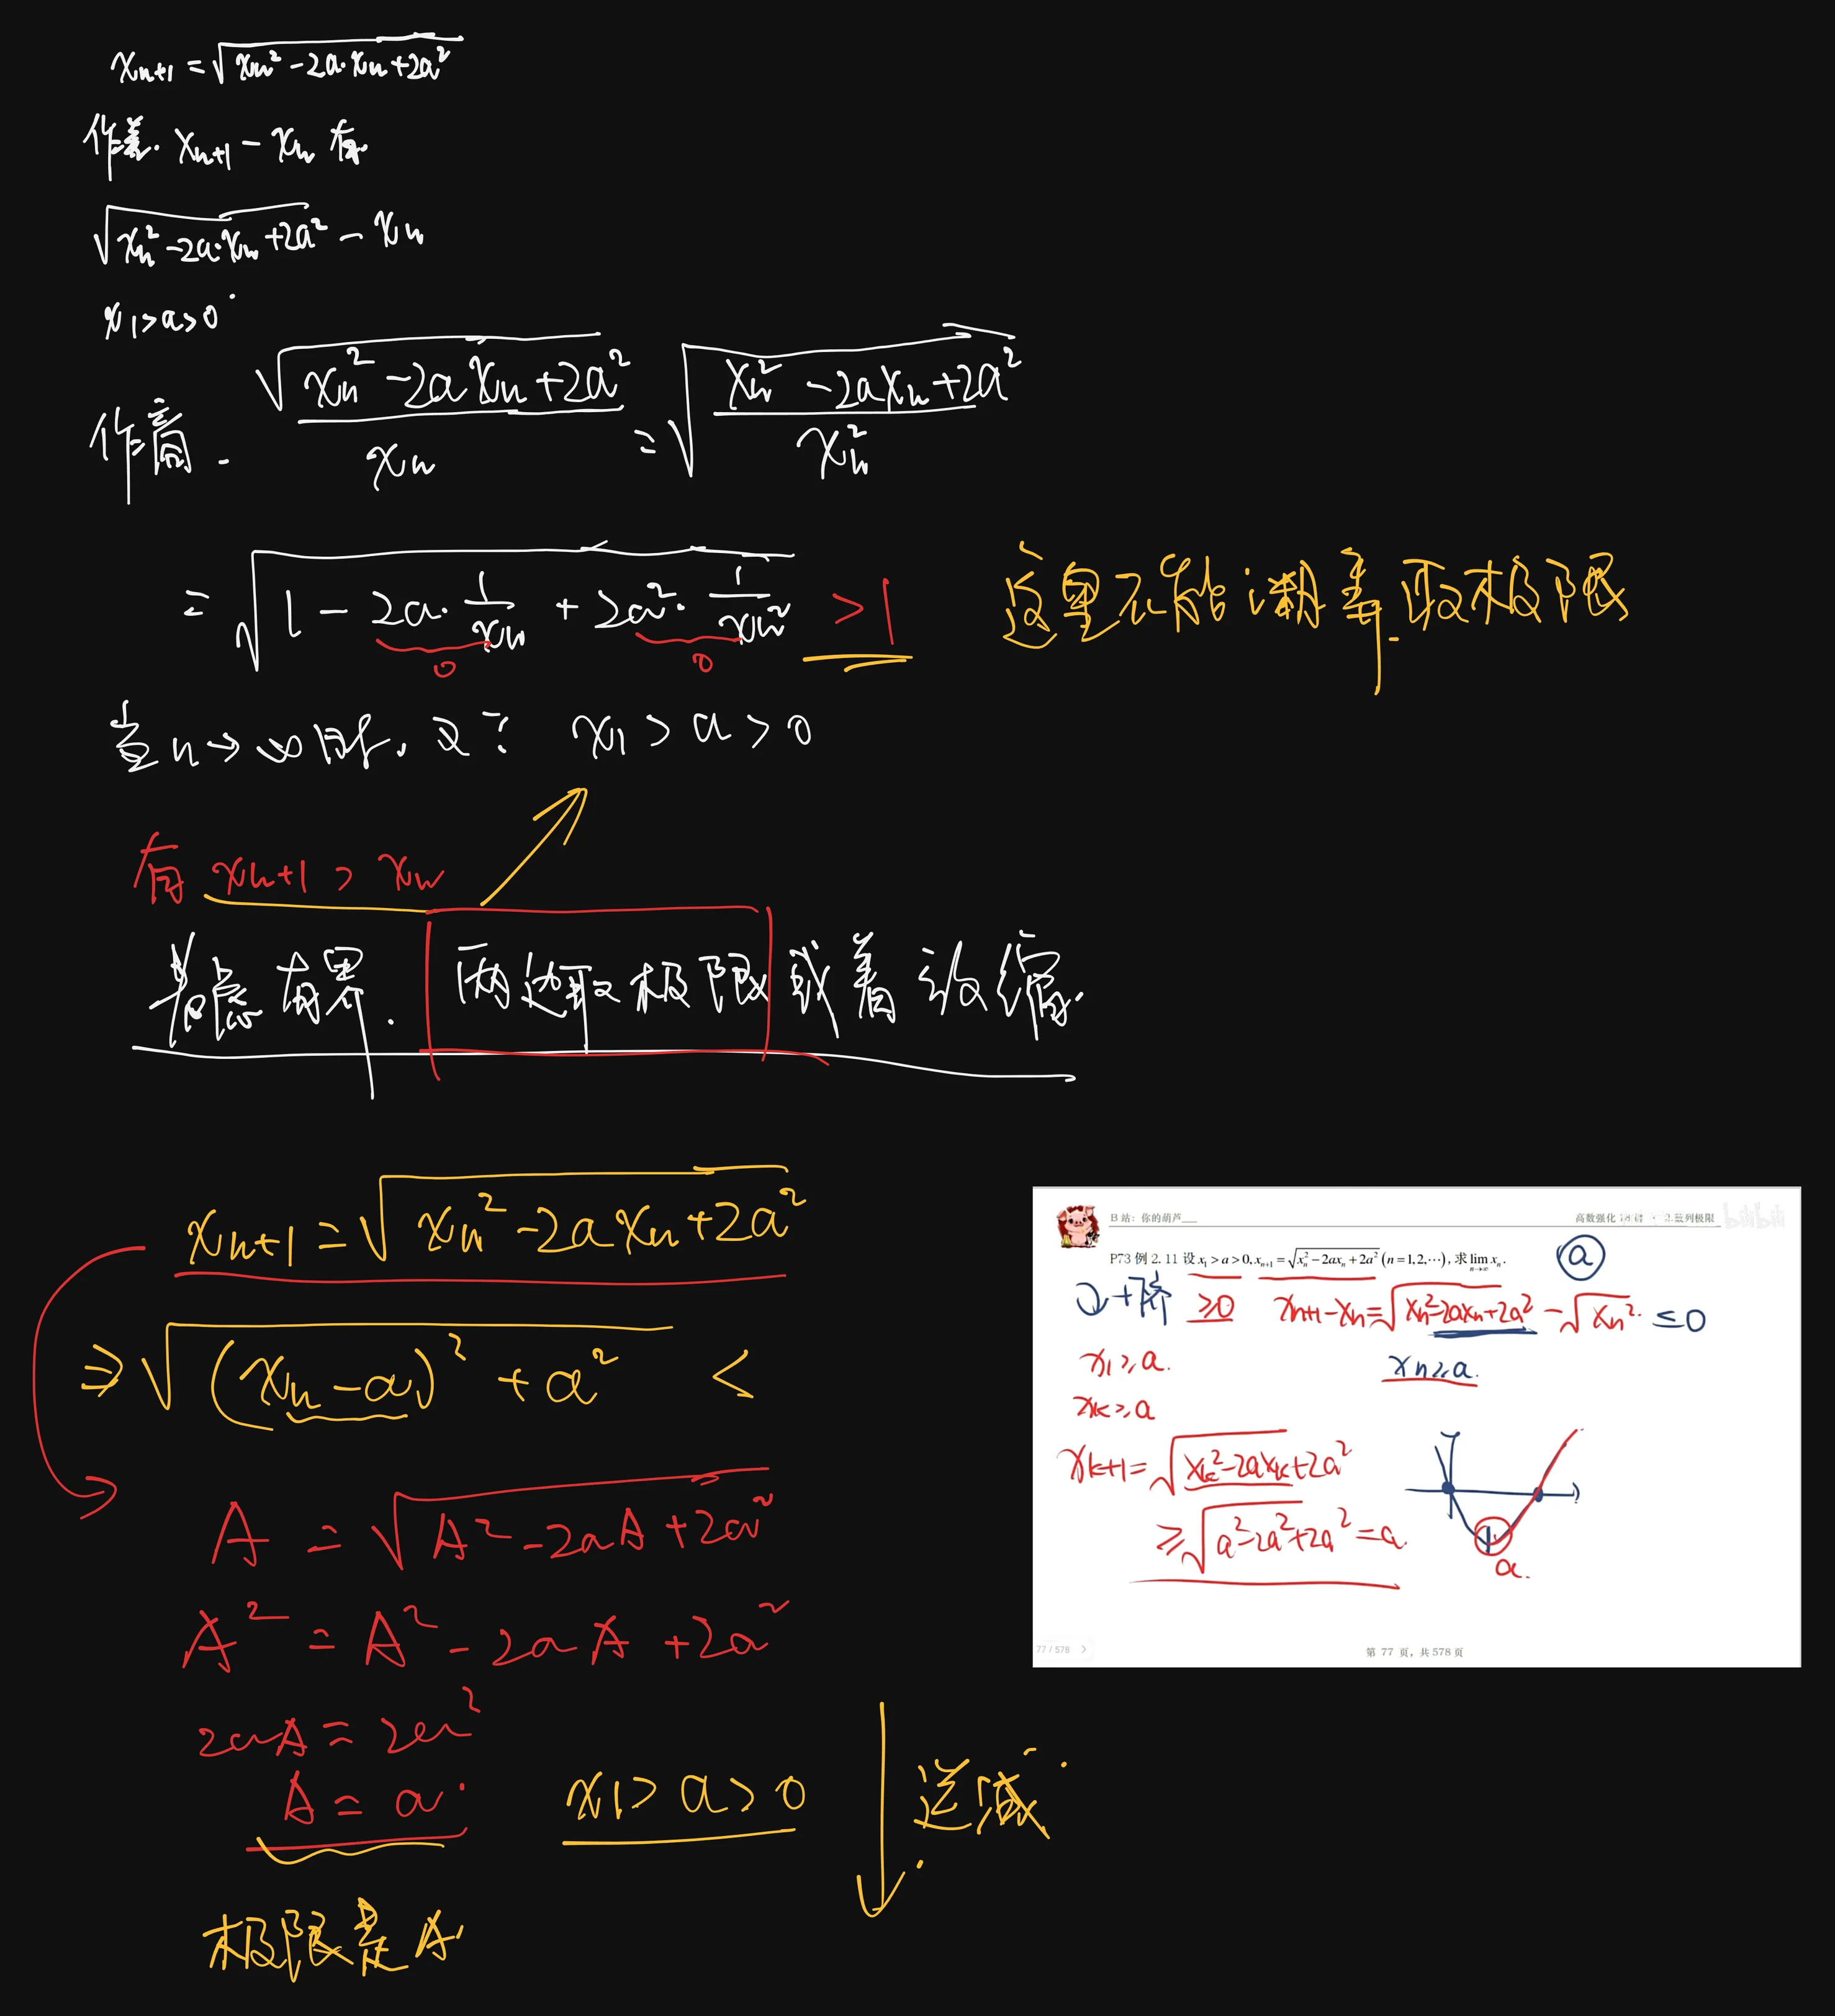 xₙ₊₁ = √(xₙ² - 2a·xₙ + 2a²)
作差. xₙ₊₁ - xₙ 有
√(xₙ² - 2a·xₙ + 2a²) - xₙ
x₁ > a > 0
作商. √(xₙ² - 2axₙ + 2a²) / xₙ = √((xₙ² - 2axₙ + 2a²) / xₙ²)
= √(1 - 2a·1/xₙ + 2a²·1/xₙ²) > 1
0 0
这里不能 取极限
当 n→∞ 时, 又∵ x₁ > a > 0
有 xₙ₊₁ > xₙ
考虑有界. 两边取极限 或者放缩.
xₙ₊₁ = √(xₙ² - 2axₙ + 2a²)
⇒ √((xₙ - a)² + a²) <
A = √(A² - 2aA + 2a²)
A² = A² - 2aA + 2a²
2aA = 2a²
A = a.
x₁ > a > 0
递减
极限是A.
B 站：你的葫芦___
高数强化 18 讲 · 2.数列极限
bilibili
P73 例 2.11 设 x₁ > a > 0, xₙ₊₁ = √(xₙ² - 2axₙ + 2a²) (n = 1,2,⋯), 求 lim xₙ.
n→∞
a
↓+下界 ≥0 xₙ₊₁ - xₙ = √(xₙ² - 2axₙ + 2a²) - √xₙ² ≤ 0
x₁ ≥ a. xₙ ≥ a.
xₖ ≥ a
xₖ₊₁ = √(xₖ² - 2axₖ + 2a²)
≥ √(a² - 2a² + 2a²) = a.
a.
77 / 578 >
第 77 页，共 578 页